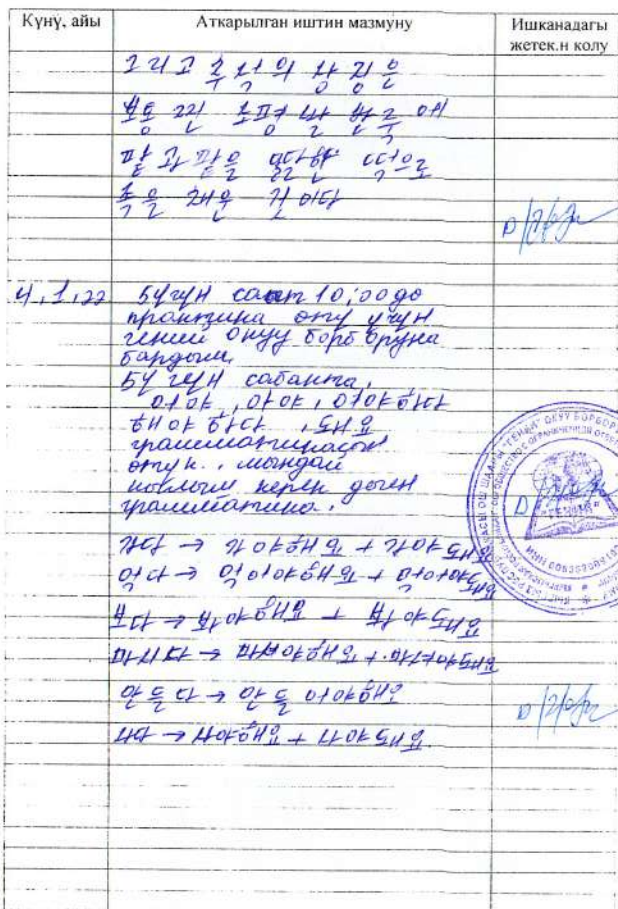 Күнү, айы
Аткарылган иштин мазмуну
Ишканадагы
жетек.н колу
그리고 추석의 상징은
보통 전 송편 밤 한국 에
팥과 팥을 떡으로
속을 채운 것이다
4,1,22
Бүгүн саат 10;00 до
практика өтү үчүн
гений окуу борборуна
бардым.
Бүгүн сабакта,
어야, 아야, 어야하다
해야 하다, 돼요
грамматикасын
өтүк., мындай
кылыш керек деген
грамматика.
가다 → 가야해요 + 가야돼요
먹다 → 먹어야해요 + 먹어야돼요
보다 → 봐야해요 + 봐야돼요
마시다 → 마셔야해요 + 마셔야돼요
만들다 → 만들어야해요
사다 → 사야해요 + 사야돼요
"ГЕНИЙ"